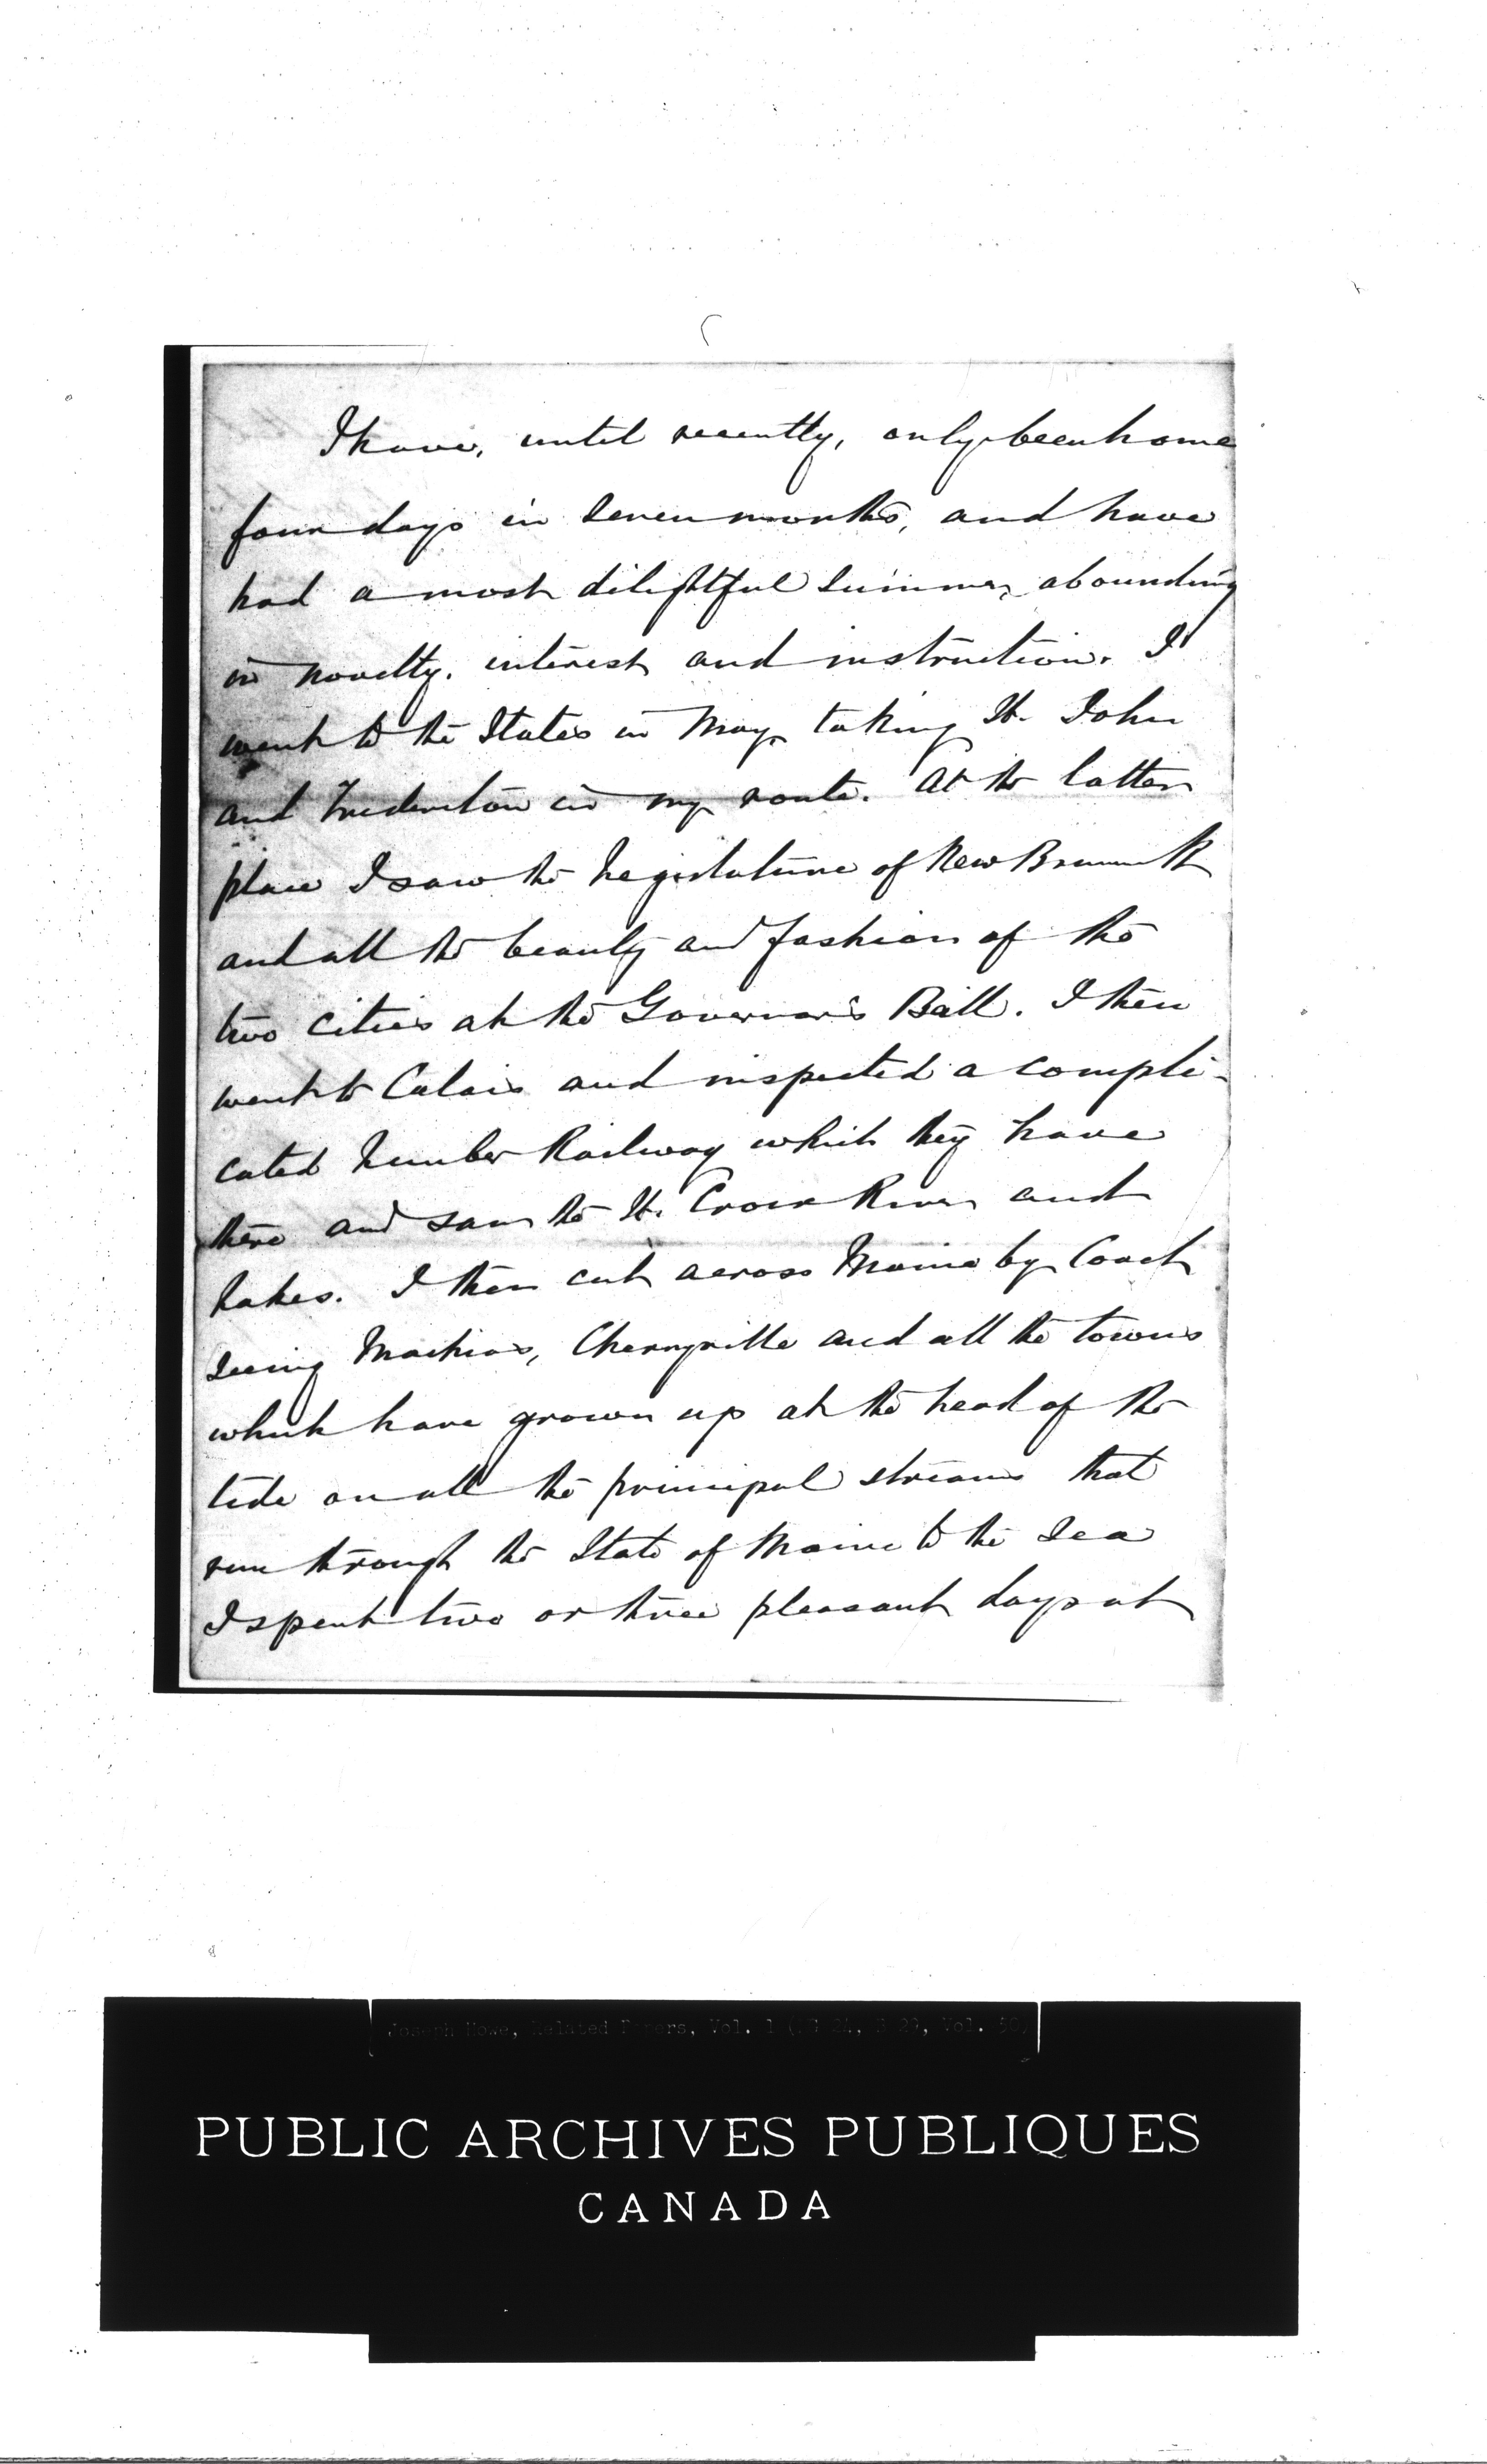 I have, until recently, only been home
four days in seven months, and have
had a most delightful summer, abounding
in novelty, interest and instruction. I
went to the States in May, taking St. John
and Fredericton in my route. At the latter
place I saw the Legislature of New Brunswick
and all the beauty and fashion of the
two cities at the Governor's Ball. I then
went to Calais and inspected a compli-
cated Lumber Railway which they have
there and saw the St. Croix River and
Lakes. I then cut across Maine by Coach
seeing Machias, Cherryville and all the towns
which have grown up at the head of the
tide on all the principal streams that
run through the State of Maine to the Sea
I spent two or three pleasant days at
Joseph Howe, Related Papers, Vol. 1 (MG 24, B 29, Vol. 50)
PUBLIC ARCHIVES PUBLIQUES
CANADA